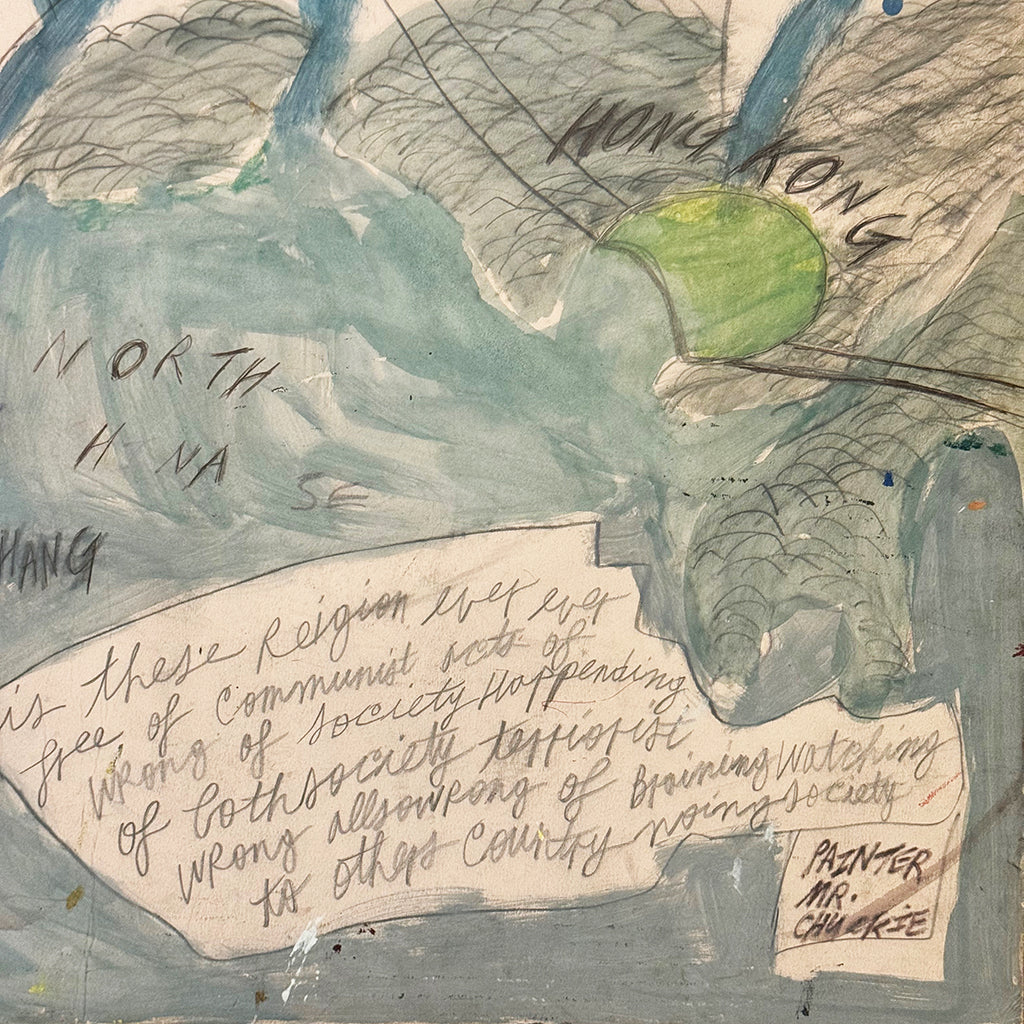 HONG KONG
NORTH
H NA
SE
HANG
is these Reigion ever ever
free of communist acts of
wrong of society Happending
of both society terriorist
wrong allsowrong of Braining Watching
to others Country noing society
PAINTER
MR.
CHUCKIE